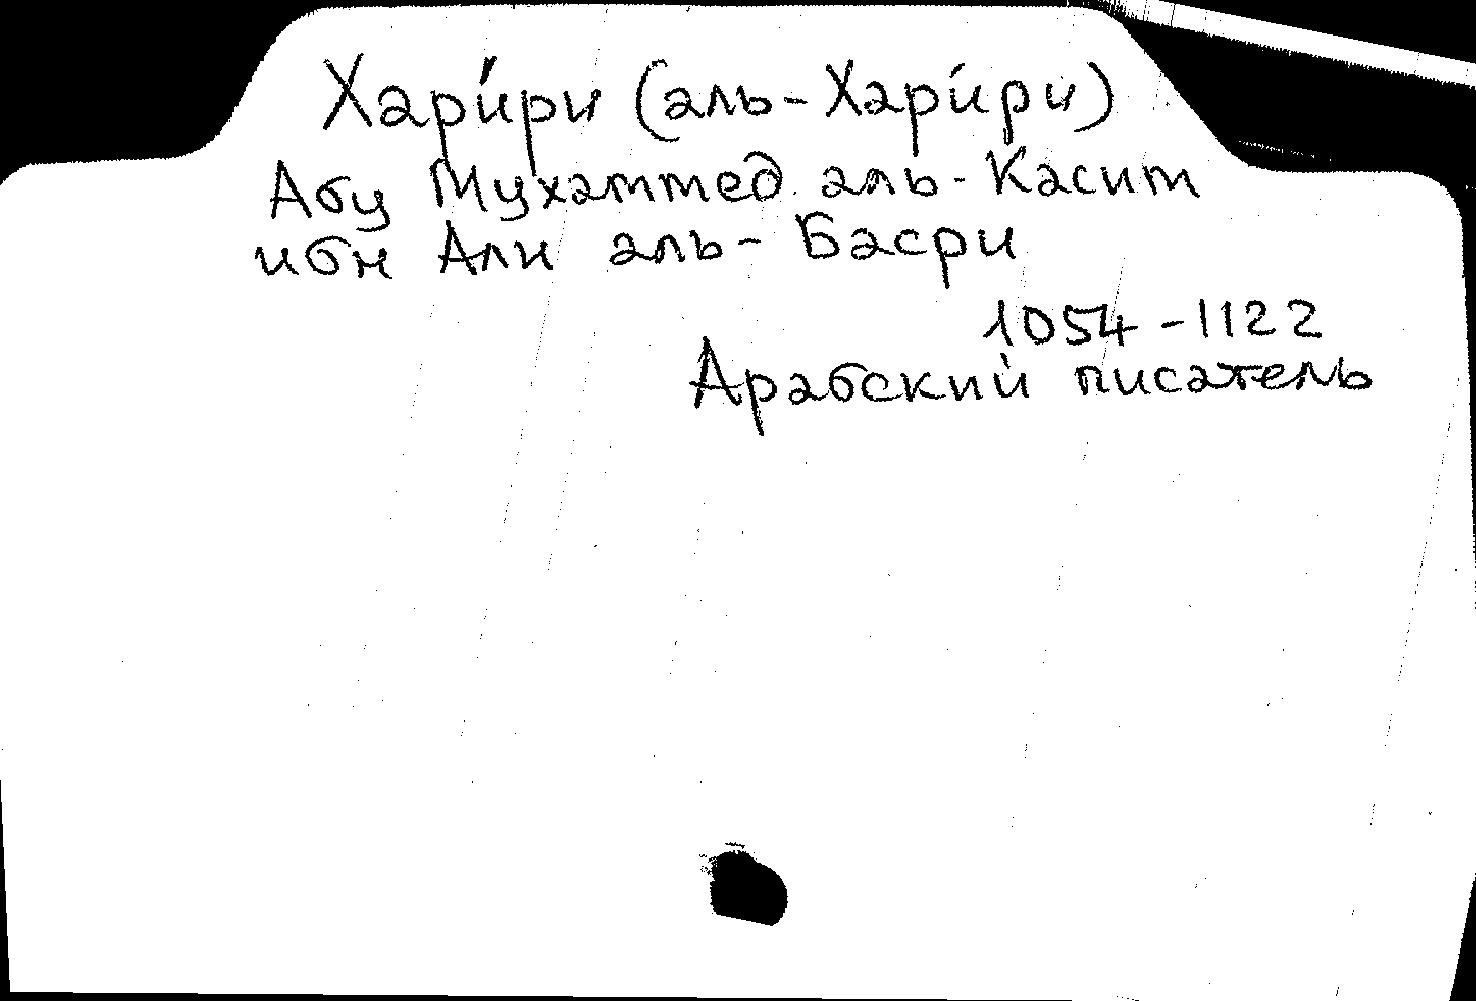 Хари́ри (аль-Хари́ри)
Абу Мухаммед аль-Касим
ибн Али аль-Басри
1054-1122
Арабский писатель